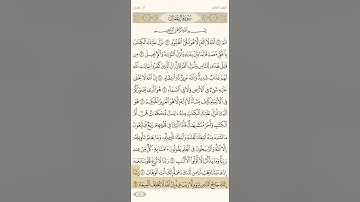 الجزء الثالث
آل عمران
سُورَةُ آلِ عِمْرَانَ
بِسْمِ اللَّهِ الرَّحْمَٰنِ الرَّحِيمِ
الٓمٓ ۝١ اللَّهُ لَا إِلَٰهَ إِلَّا هُوَ الْحَيُّ الْقَيُّومُ ۝٢ نَزَّلَ عَلَيْكَ الْكِتَٰبَ
بِالْحَقِّ مُصَدِّقًا لِّمَا بَيْنَ يَدَيْهِ وَأَنزَلَ التَّوْرَىٰةَ وَالْإِنجِيلَ ۝٣
مِن قَبْلُ هُدًى لِّلنَّاسِ وَأَنزَلَ الْفُرْقَانَ إِنَّ الَّذِينَ كَفَرُوا بِـَٔايَٰتِ اللَّهِ
لَهُمْ عَذَابٌ شَدِيدٌ وَاللَّهُ عَزِيزٌ ذُو انتِقَامٍ ۝٤ إِنَّ اللَّهَ لَا يَخْفَىٰ
عَلَيْهِ شَيْءٌ فِي الْأَرْضِ وَلَا فِي السَّمَاءِ ۝٥ هُوَ الَّذِي يُصَوِّرُكُمْ
فِي الْأَرْحَامِ كَيْفَ يَشَاءُ لَا إِلَٰهَ إِلَّا هُوَ الْعَزِيزُ الْحَكِيمُ ۝٦ هُوَ
الَّذِي أَنزَلَ عَلَيْكَ الْكِتَٰبَ مِنْهُ ءَايَٰتٌ مُّحْكَمَٰتٌ هُنَّ أُمُّ
الْكِتَٰبِ وَأُخَرُ مُتَشَٰبِهَٰتٌ فَأَمَّا الَّذِينَ فِي قُلُوبِهِمْ زَيْغٌ فَيَتَّبِعُونَ
مَا تَشَٰبَهَ مِنْهُ ابْتِغَاءَ الْفِتْنَةِ وَابْتِغَاءَ تَأْوِيلِهِ وَمَا يَعْلَمُ تَأْوِيلَهُ
إِلَّا اللَّهُ وَالرَّٰسِخُونَ فِي الْعِلْمِ يَقُولُونَ ءَامَنَّا بِهِ كُلٌّ مِّنْ عِندِ
رَبِّنَا وَمَا يَذَّكَّرُ إِلَّا أُولُوا الْأَلْبَٰبِ ۝٧ رَبَّنَا لَا تُزِغْ قُلُوبَنَا بَعْدَ
إِذْ هَدَيْتَنَا وَهَبْ لَنَا مِن لَّدُنكَ رَحْمَةً إِنَّكَ أَنتَ الْوَهَّابُ ۝٨ رَبَّنَا
إِنَّكَ جَامِعُ النَّاسِ لِيَوْمٍ لَّا رَيْبَ فِيهِ إِنَّ اللَّهَ لَا يُخْلِفُ الْمِيعَادَ ۝٩